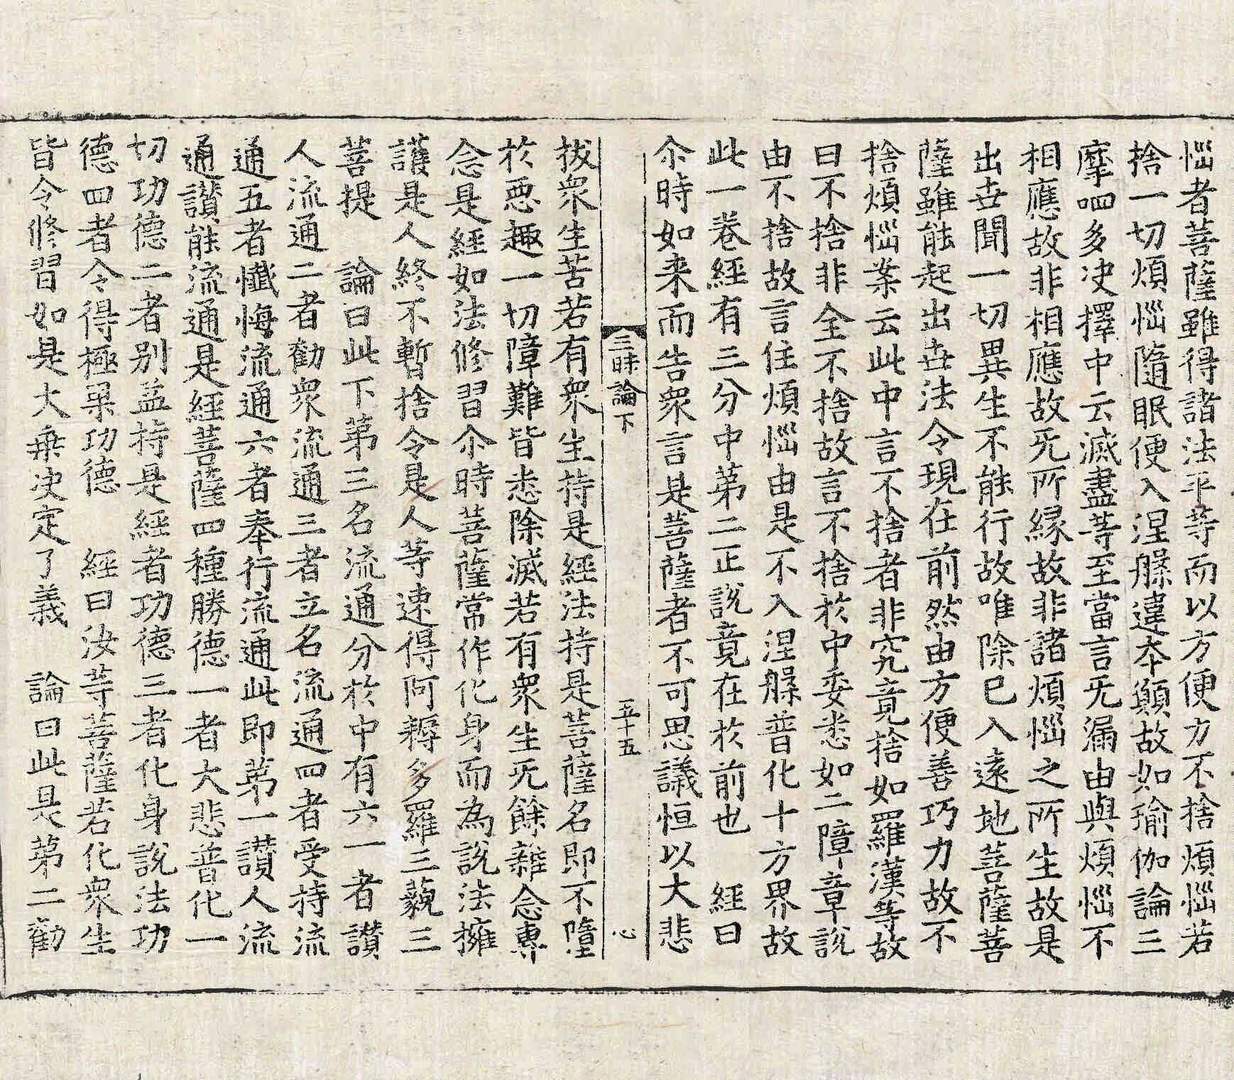 惱者菩薩雖得諸法平等而以方便方不捨煩惱若
捨一切煩惱隨眠便入涅槃違夲願故如瑜伽論三
摩呬多决擇中云滅盡等至當言旡漏由與煩惱不
相應故非相應故旡所縁故非諸煩惱之所生故是
出丗聞一切異生不能行故唯除已入遠地菩薩菩
薩雖能起出丗法令現在前然由方便善巧力故不
捨煩惱案云此中言不捨者非究竟捨如羅漢等故
曰不捨非全不捨故言不捨於中委悉如二障章說
由不捨故言住煩惱由是不入涅槃普化十方界故
此一卷經有三分中第二正說竟在於前也　經曰
尒時如来而告衆言是菩薩者不可思議恒以大悲
三昧論下　五十五　心
拔衆生苦若有衆生持是經法持是菩薩名即不墮
於惡趣一切障難皆悉除滅若有衆生旡餘雜念專
念是經如法修習尒時菩薩常作化身而為說法擁
護是人終不暫捨令是人等速得阿耨多羅三藐三
菩提　論曰此下第三名流通分於中有六一者讃
人流通二者勸衆流通三者立名流通四者受持流
通五者懺悔流通六者奉行流通此即第一讃人流
通讃能流通是經菩薩四種勝德一者大悲普化一
切功德二者別益持是經者功德三者化身說法功
德四者令得極果功德　經曰汝等菩薩若化衆生
皆令修習如是大乗决定了義　論曰此是第二勸